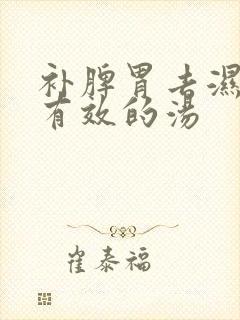 补脾胃去濕
有效的汤
崔泰福